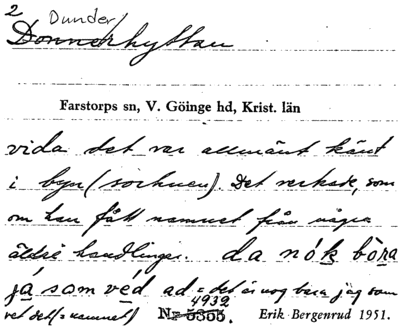 2
Dunder/
Donnerhyttan
Farstorps sn, V. Göinge hd, Krist. län
vida det var allmänt känt
i byn (socknen). Det verkade, som
om han fått namnet från några
äldre handlingar. da nók bòra
já som véd ad = det är nog bara jag som
4932
vet det (= namnet) Nr 5355. Erik Bergenrud 1951.